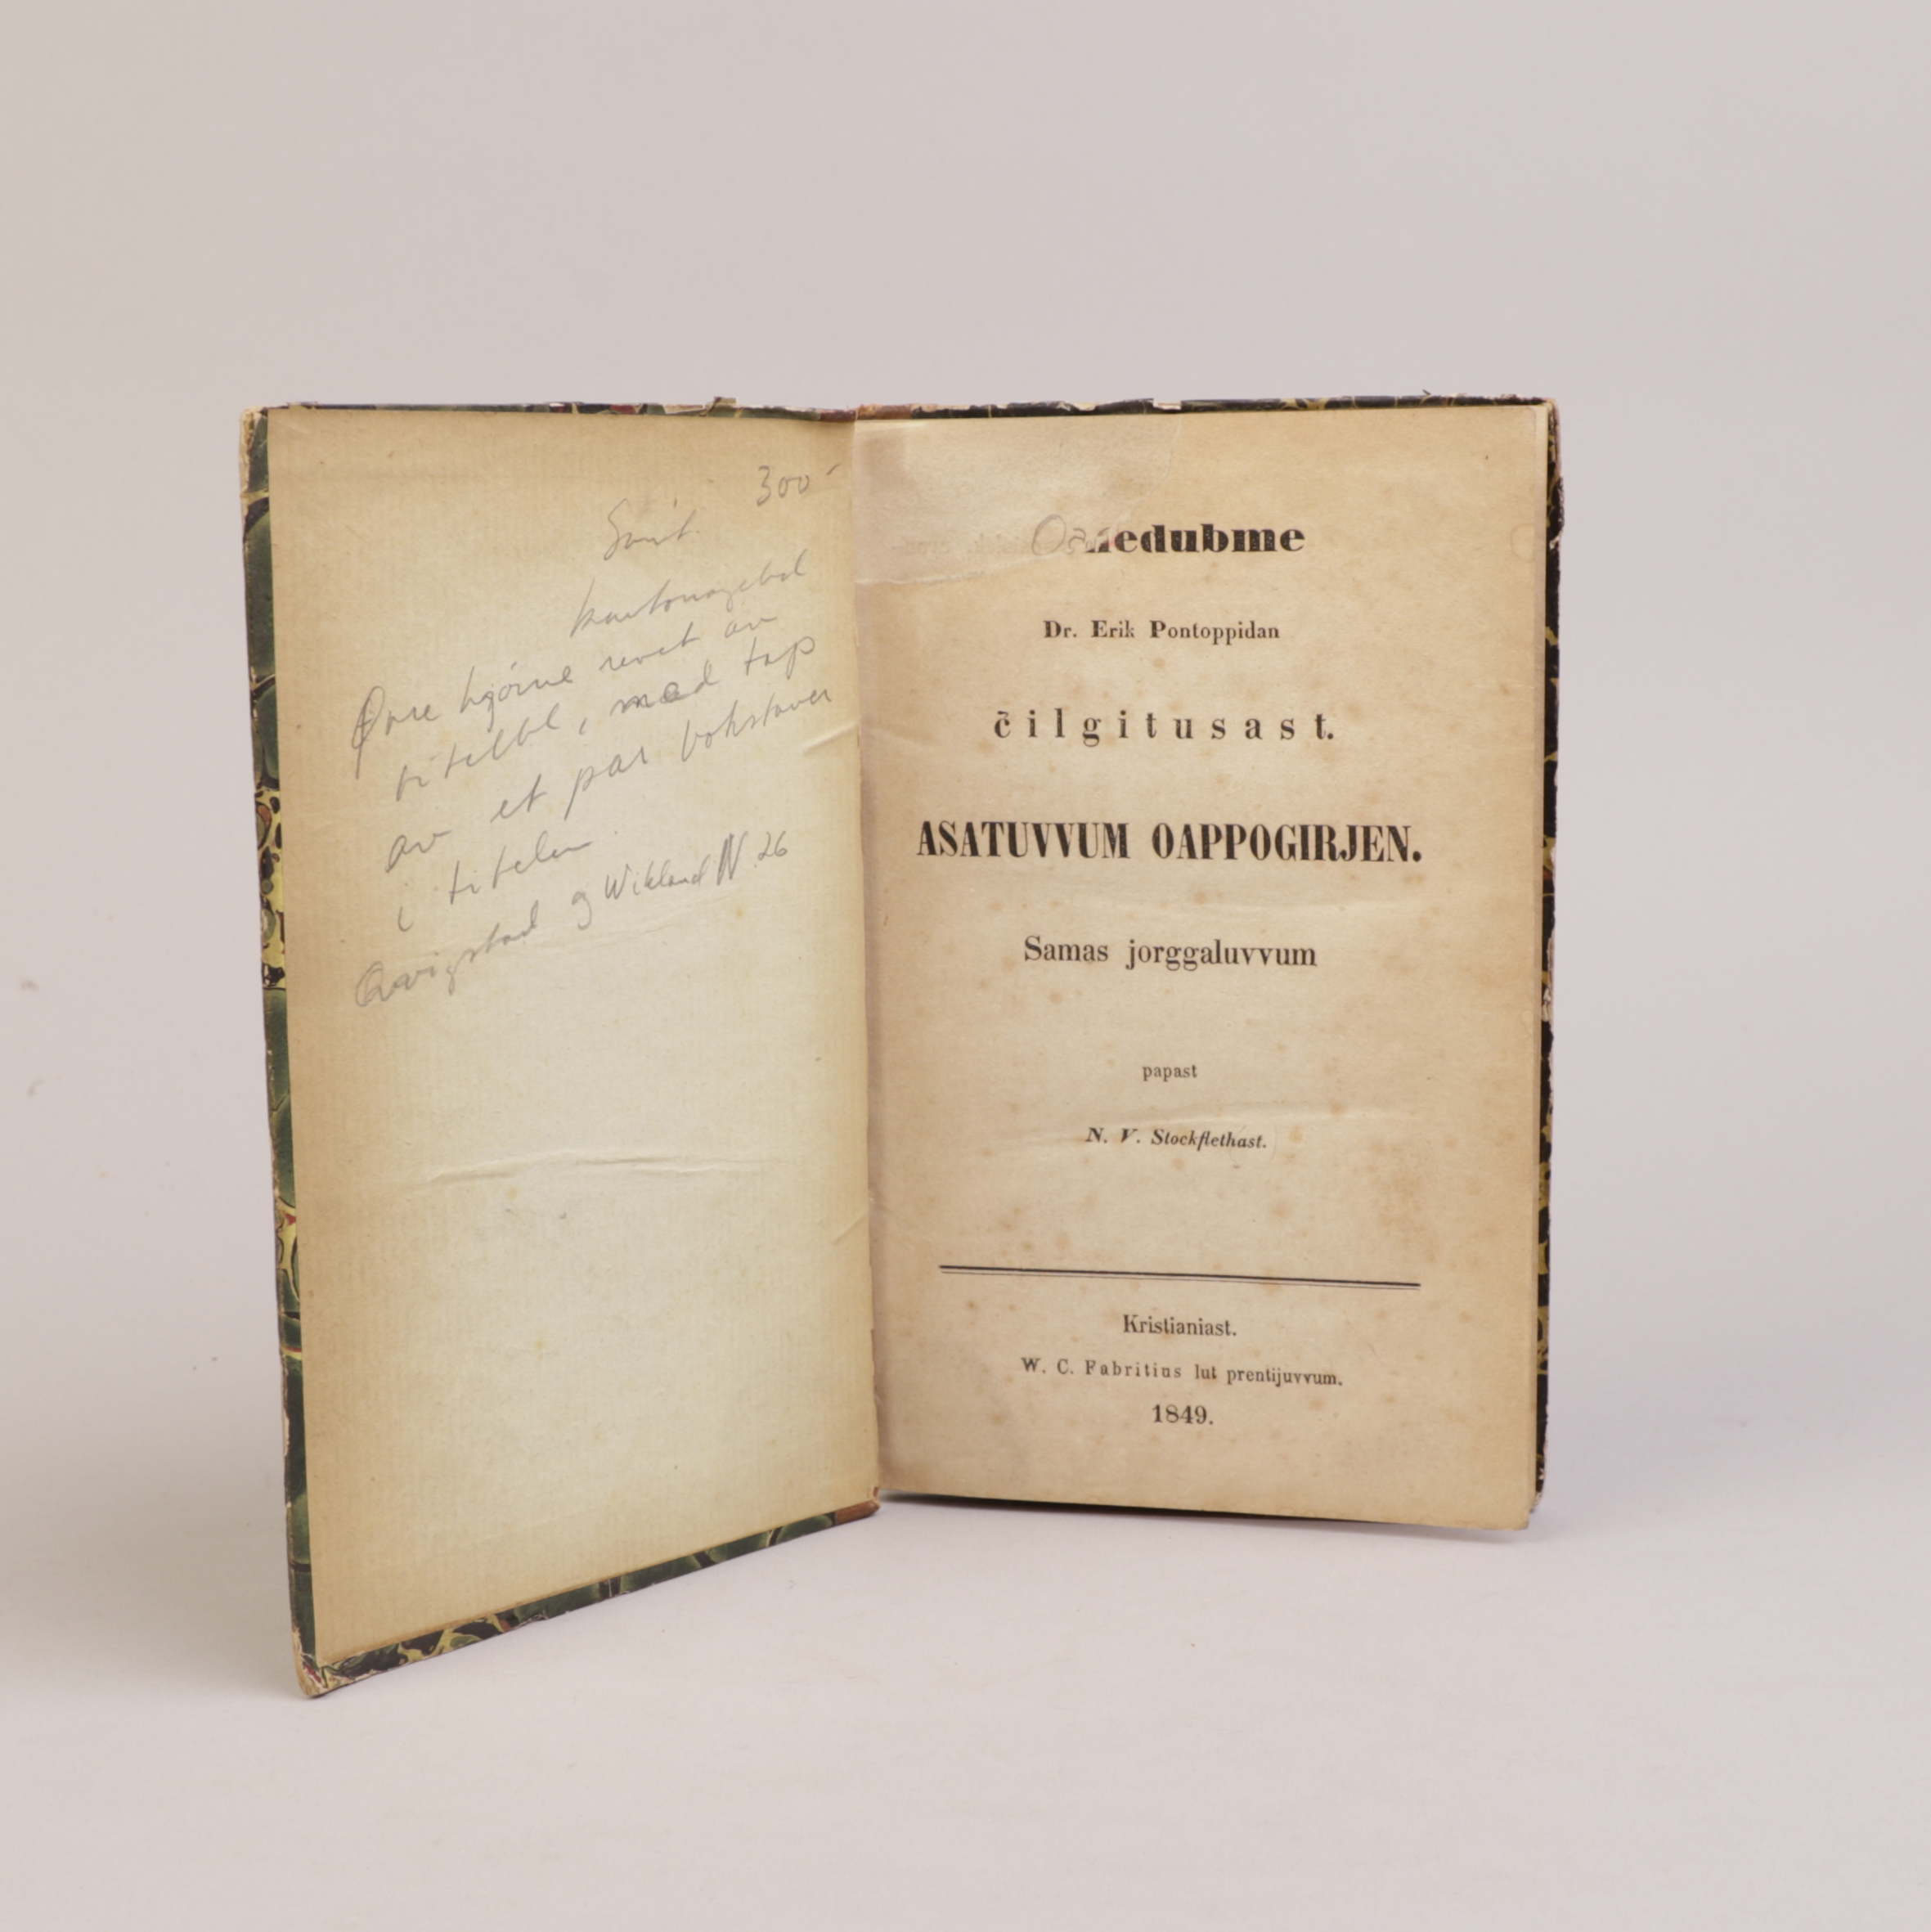 300-
Smit.
kartonnagebd
Øvre hjørne revet av
titelbl, med tap
av et par bokstaver
i titelen
Qvigstad og Wiklund N 26
Oanedubme
Dr. Erik Pontoppidan
čilgitusast.
ASATUVVUM OAPPOGIRJEN.
Samas jorggaluvvum
papast
N. V. Stockflethast.
Kristianiast.
W. C. Fabritius lut prentijuvvum.
1849.